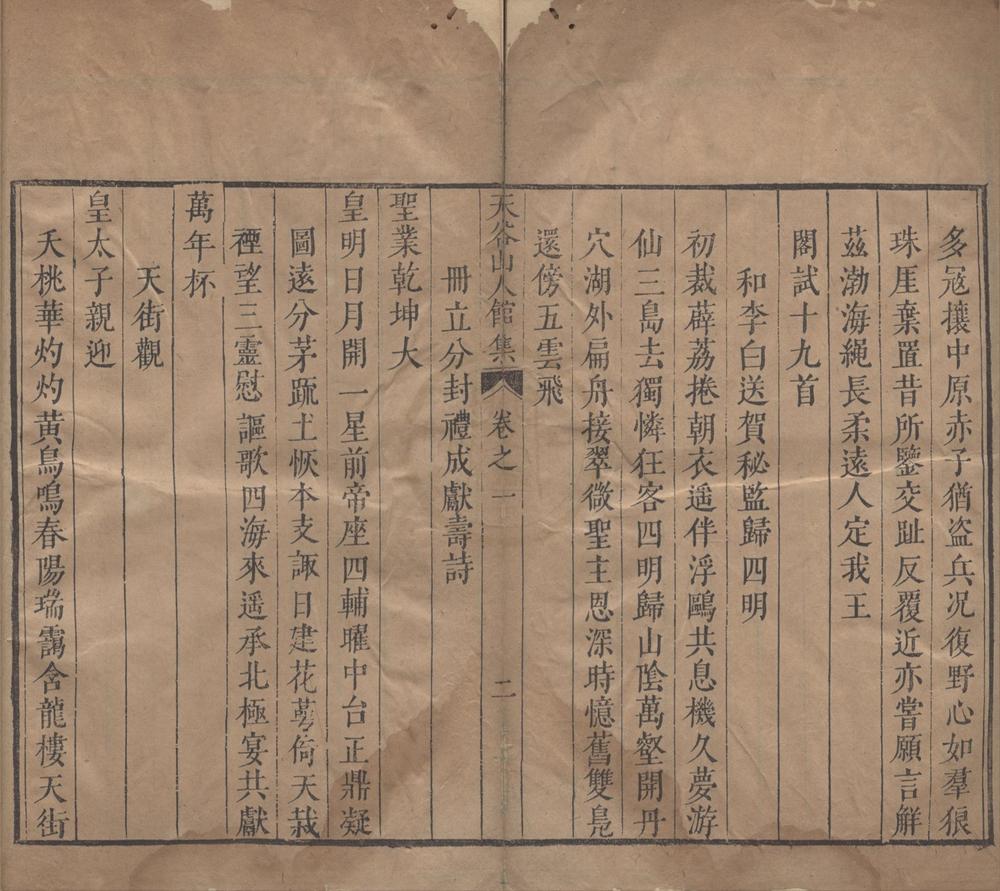 多冦攘中原赤子猶盜兵况復野心如羣狼
珠厓棄置昔所鑒交趾反覆近亦嘗願言觧
茲渤海繩長柔遠人定我王
閣試十九首
和李白送賀秘監歸四明
初裁薜荔捲朝衣遥伴浮鷗共息機久夢游
仙三島去獨憐狂客四明歸山陰萬壑開丹
穴湖外扁舟接翠微聖主恩深時憶舊雙鳬
還傍五雲飛
天谷山人館集 卷之一 二
冊立分封禮成獻壽詩
聖業乾坤大
皇明日月開一星前帝座四輔曜中台正鼎凝
圖遠分茅䟽土恢本支諏日建花蕚倚天栽
禋望三靈慰謳歌四海來遥承北極宴共獻
萬年杯
天街觀
皇太子親迎
夭桃華灼灼黄鳥鳴春陽瑞靄含龍樓天街